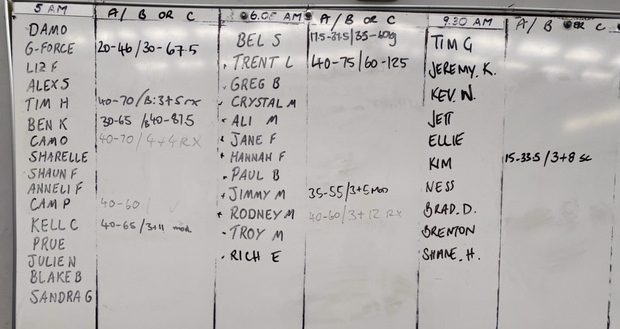 5 AM A / B OR C
DAMO
G-FORCE 20-46/30-67.5
LIZ F
ALEX S
TIM H 40-70/B:3+5 rx
BEN K 30-65 /B40-87.5
CAMO 40-70/4+4 RX
SHARELLE
SHAUN F
ANNELI F
CAM P 40-60/
KELL C 40-65/3+11 mod
PRUE
JULIEN
BLAKE B
SANDRA G
6.05 AM A/B OR C
BEL S 17.5-37.5/35-60kg
TRENT L 40-75/60-125
GREG B
CRYSTAL M
ALI M
JANE F
HANNAH F
PAUL B
JIMMY M 35-55/3+5 MOD
RODNEY M 40-60/3+12 RX
TROY M
RICH E
9.30 AM A/ B OR C
TIM G
JEREMY. K.
KEV. N.
JETT
ELLIE
KIM 15-33.5/3+8 sc
NESS
BRAD. D.
BRENTON
SHANE. H.